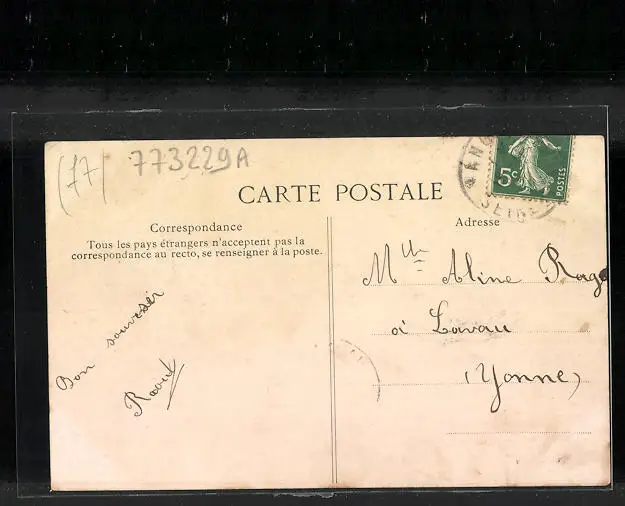 (77)
773229A
CARTE POSTALE
5c
POSTES
SEINE
Correspondance
Tous les pays étrangers n'acceptent pas la
correspondance au recto, se renseigner à la poste.
Bon souvenir
Raoul
Adresse
Mlle Aline
à Lavau
(Yonne)